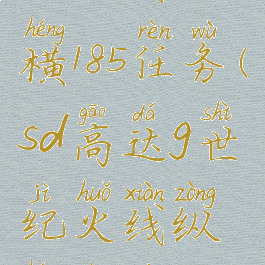 héng rèn wù
横185任务(
gāo dá shì
sd高达g世
jì huǒ xiàn zòng
纪火线纵